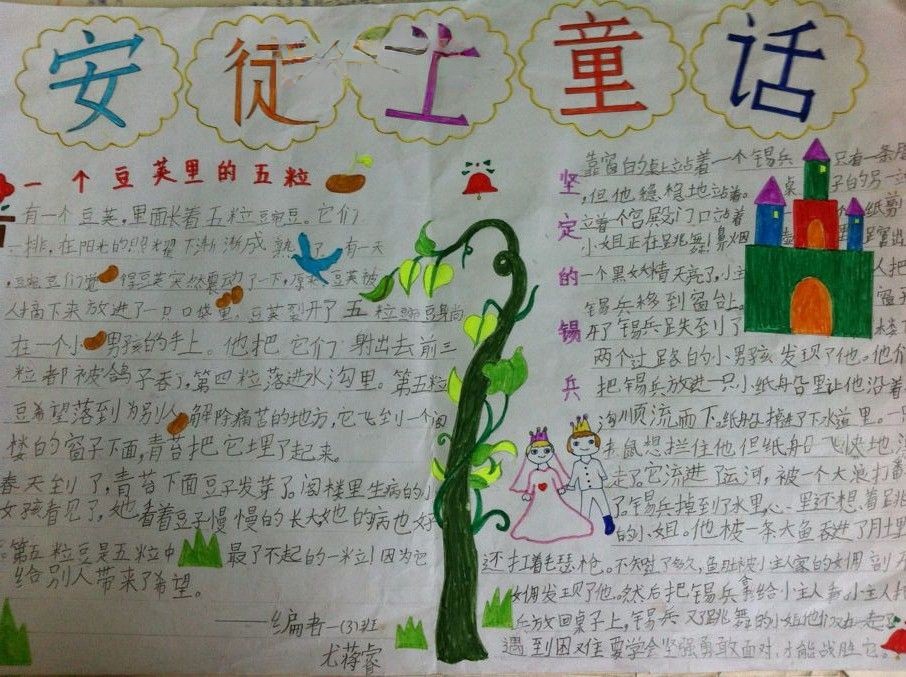 安徒生童话
一个豆荚里的五粒
有一个豆荚,里面长着五粒豌豆。它们
一排,在阳光的照耀下渐渐成熟了。有一天
豌豆们觉得豆荚突然震动了一下,原来豆荚被
人摘下来放进了一只口袋里,豆荚裂开了五粒豌豆身尚
在一个小男孩的手上。他把它们射出去前三
粒都被鸽子吞了,第四粒落进水沟里。第五粒
豆希望落到为别人解除痛苦的地方,它飞到一个阁
楼的窗子下面,青苔把它埋了起来。
春天到了,青苔下面豆子发芽了。阁楼里生病的小
女孩看见了,她看着豆子慢慢的长大她的病也好
第五粒豆是五粒中最了不起的一粒!因为它
给别人带来了希望。
——编者一(3)班
尤蒋睿
坚定的锡兵
靠窗白的桌上站着一个锡兵 只有一条
,但他稳稳地站着。桌子白的另一边
立着个宫殿,门口站着 纸剪
小姐正在跳舞!鼻烟
一个黑妖精天亮了,小主人把
锡兵移到窗台。
锡兵跌到了
两个过路的小男孩发现了他。他们
把锡兵放进一只小纸船里让他沿着
沟顺流而下。纸船掉进了下水道里。一只
老鼠想拦住他但纸船飞快地
走了。它流进了运河,被一个大浪打着
了。锡兵掉到了水里,心里还想着跳
的小姐。他被一条大鱼吞进了肚里
还扛着毛瑟枪。不知过了多久,鱼肚被小主人家的女佣剖开
女佣发现了他。然后把锡兵拿给小主人看小主人把
兵放回桌子上,锡兵又跳舞的小姐他们又在一起了
遇到困难要学会坚强勇敢面对,才能战胜它。